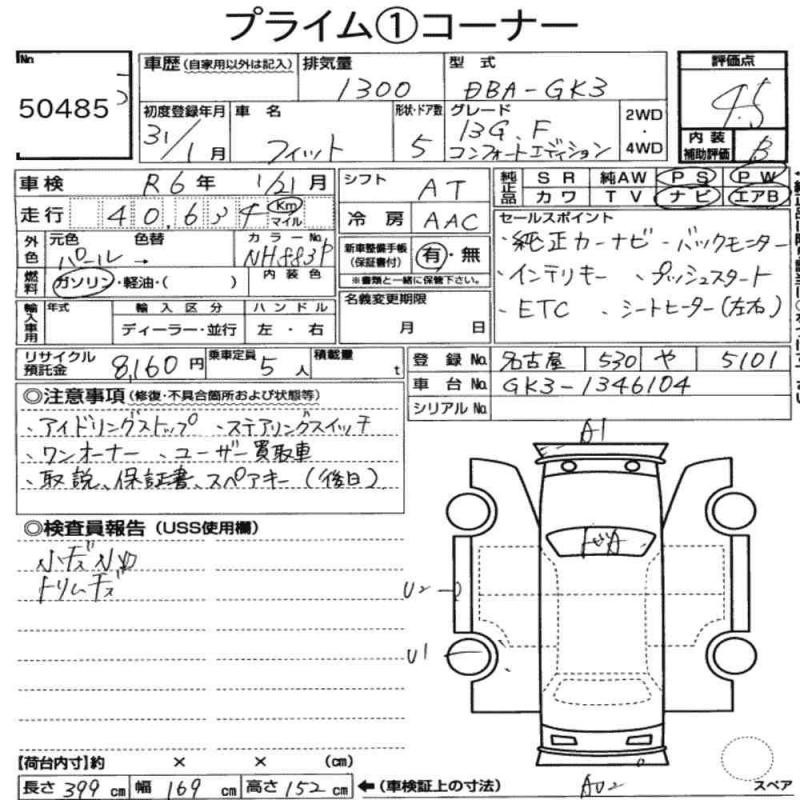 プライム①コーナー
No. 50485
車歴 (自家用以外は記入) 排気量 1300 型式 DBA-GK3 評価点 4.5
初度登録年月 31/1月 車名 フィット 形状・ドア数 5 グレード 13G.F コンフォートエディション 2WD・4WD 内装補助評価 B
車検 R6年 1/21月 シフト AT 純正品 SR 純AW PS PW
カワ TV ナビ エアB
走行 40,634 Km マイル 冷房 AAC セールスポイント
外色 元色 パール 色替 → カラーNo. NH883P 新車整備手帳(保証書付) 有・無 ・純正カーナビ・バックモニター
※書類と一緒に保管下さい。
燃料 ガソリン・軽油・( ) 内装色 ・インテリキー ・プッシュスタート
名義変更期限 月 日 ・ETC ・シートヒーター(左右)
輸入車用 年式 輸入区分 ディーラー・並行 ハンドル 左・右
リサイクル預託金 8,160円 乗車定員 5人 積載量 t 登録No. 名古屋 530 や 5101
車台No. GK3-1346104
シリアルNo.
◎注意事項(修復・不具合箇所および状態等)
、アイドリングストップ 、ステアリングスイッチ
、ワンオーナー 、ユーザー買取車
、取説、保証書、スペアキー(後日)
A1
◎検査員報告(USS使用欄)
小キズ
トリムキズ
U2
U1
【荷台内寸】約 × × (cm)
長さ 399 cm 幅 169 cm 高さ 152 cm ←(車検証上の寸法) AU2 スペア